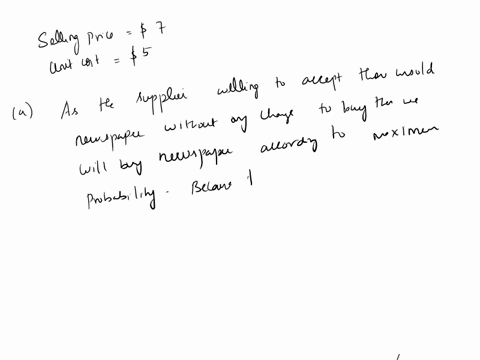 Selling price = $ 7
Unit cost = $ 5
(a) As the supplier willing to accept then would
newspaper without any charge to buy then we
will buy newspaper according to maximum
Probability. Because